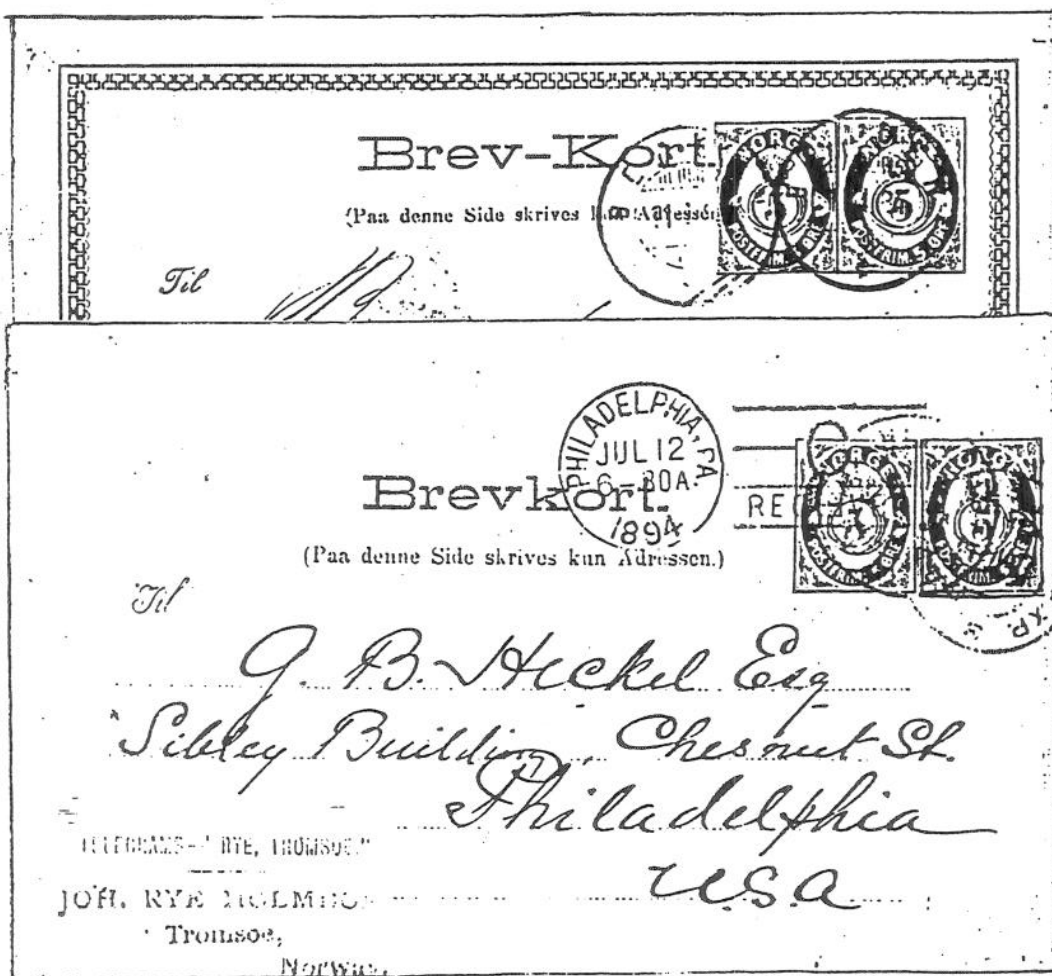 Brev-Kort.
(Paa denne Side skrives kun Adressen
NORGE
POSTFRIM. 5 ØRE
NORGE
5
POSTFRIM. 5 ØRE
Til
PHILADELPHIA, PA.
JUL 12
6-30A
1894
REC
Brevkort.
(Paa denne Side skrives kun Adressen.)
NORGE
POSTFRIM. 5 ØRE
NORGE
POSTFRIM. 5 ØRE
Til
G. B. Heckel Esq
Sibley Building, Chesnut St.
Philadelphia
U.S.A
TELEGRAMS- "RYE, TROMSOE."
JOH. RYE HOLMBOE
Tromsoe,
Norway.